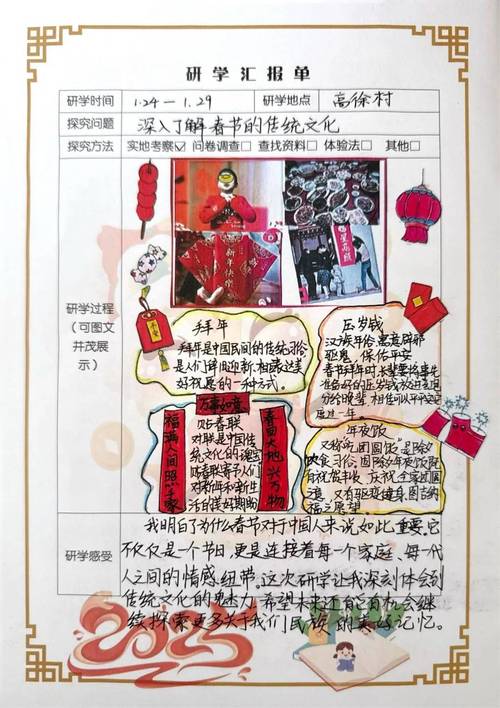 研学汇报单
研学时间 1.24—1.29 研学地点 高徐村
探究问题 深入了解春节的传统文化
探究方法 实地考察☑ 问卷调查□ 查找资料□ 体验法□ 其他□
研学过程
(可图文
并茂展
示)
新年快乐
平安
拜年
拜年是中国民间的传统习俗
是人们辞旧迎新、相互表达美
好祝愿的一种方式。
压岁钱
汉族年俗,寓意辟邪
驱鬼,保佑平安
春节拜年时,长辈要将事先
准备好的压岁钱放进红包
分给晚辈,相传可以平平安安
度过一年。
万事如意
福满人间照千家
春回大地兴万物
贴春联
对联是中国传
统文化的瑰宝
贴春联寄予人们
对新年和新生
活的美好期盼
年夜饭
又称吃"团圆饭"是除夕
饮食习俗,团圆年夜饭既
有祝贺丰收、庆祝全家团圆
道,又有驱疫健身、图吉纳
福之愿望
研学感受
我明白了为什么春节对于中国人来说如此重要。它
不仅仅是一个节日,更是连接着每一个家庭、每一代
人之间的情感纽带。这次研学让我深刻体会到
传统文化的魅力,希望未来还有有机会继
续探索更多关于我们民族的美好记忆。
2025